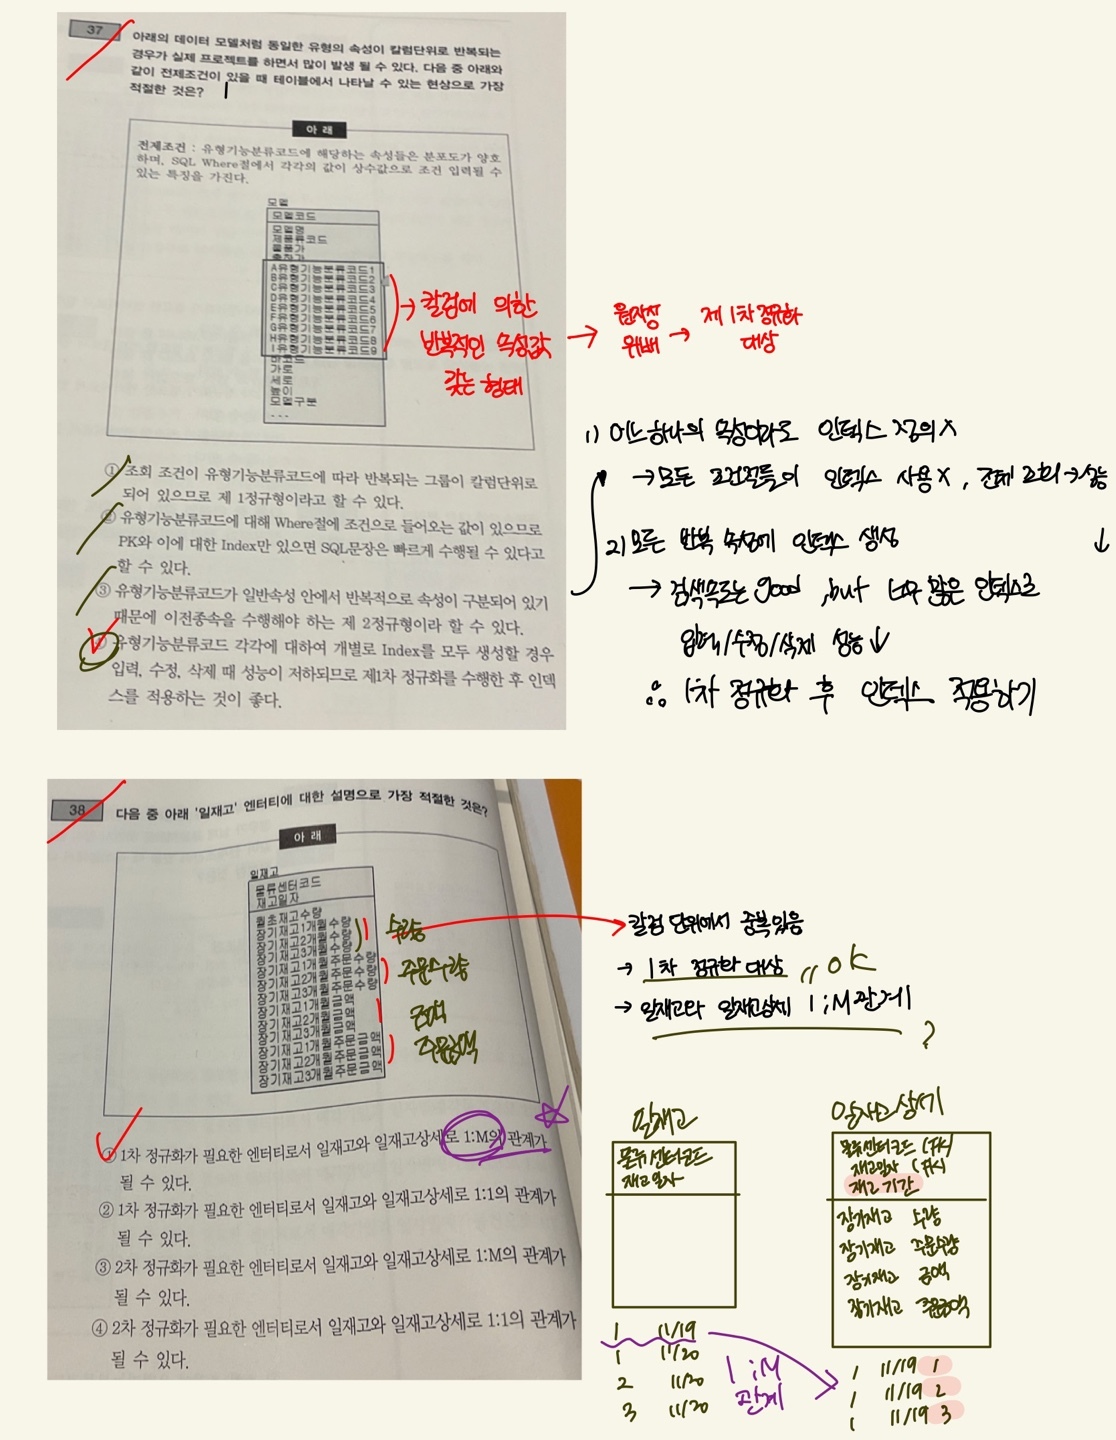 37
아래의 데이터 모델처럼 동일한 유형의 속성이 칼럼단위로 반복되는
경우가 실제 프로젝트를 하면서 많이 발생 될 수 있다. 다음 중 아래와
같이 전제조건이 있을 때 테이블에서 나타날 수 있는 현상으로 가장
적절한 것은?
아 래
전제조건 : 유형기능분류코드에 해당하는 속성들은 분포도가 양호
하며, SQL Where절에서 각각의 값이 상수값으로 조건 입력될 수
있는 특징을 가진다.
모델
모델코드
모델명
제품류코드
물품가
출장가
A유형기능분류코드1
B유형기능분류코드2
C유형기능분류코드3
D유형기능분류코드4
E유형기능분류코드5
F유형기능분류코드6
G유형기능분류코드7
H유형기능분류코드8
I유형기능분류코드9
바코드
가로
세로
높이
모델구분
...
→ 칼럼에 의한
반복적인 속성값
갖는 형태
→ 원자성
위배
→ 제 1차 정규화
대상
① 조회 조건이 유형기능분류코드에 따라 반복되는 그룹이 칼럼단위로
되어 있으므로 제 1정규형이라고 할 수 있다.
② 유형기능분류코드에 대해 Where절에 조건으로 들어오는 값이 있으므로
PK와 이에 대한 Index만 있으면 SQL문장은 빠르게 수행될 수 있다고
할 수 있다.
③ 유형기능분류코드가 일반속성 안에서 반복적으로 속성이 구분되어 있기
때문에 이전종속을 수행해야 하는 제 2정규형이라 할 수 있다.
④ 유형기능분류코드 각각에 대하여 개별로 Index를 모두 생성할 경우
입력, 수정, 삭제 때 성능이 저하되므로 제1차 정규화를 수행한 후 인덱
스를 적용하는 것이 좋다.
1) 어느하나의 속성이라도 인덱스 정의 X
→ 모든 조건절들이 인덱스 사용 X, 전체 조회 → 성능
↓
2) 모든 반복 속성에 인덱스 생성
→ 검색속도는 good, but 너무 많은 인덱스로
입력/수정/삭제 성능 ↓
∴ 1차 정규화 후 인덱스 적용하기
38
다음 중 아래 '일재고' 엔터티에 대한 설명으로 가장 적절한 것은?
아 래
일재고
물류센터코드
재고일자
월초재고수량
장기재고1개월수량
장기재고2개월수량
장기재고3개월수량
장기재고1개월주문수량
장기재고2개월주문수량
장기재고3개월주문수량
장기재고1개월금액
장기재고2개월금액
장기재고3개월금액
장기재고1개월주문금액
장기재고2개월주문금액
장기재고3개월주문금액
수량
주문수량
금액
주문금액
칼럼 단위에서 중복있음
→ 1차 정규화 대상 // OK
→ 일재고와 일재고상세 1:M관계
?
① 1차 정규화가 필요한 엔터티로서 일재고와 일재고상세로 1:M의 관계가
될 수 있다.
② 1차 정규화가 필요한 엔터티로서 일재고와 일재고상세로 1:1의 관계가
될 수 있다.
③ 2차 정규화가 필요한 엔터티로서 일재고와 일재고상세로 1:M의 관계가
될 수 있다.
④ 2차 정규화가 필요한 엔터티로서 일재고와 일재고상세로 1:1의 관계가
될 수 있다.
일재고
물류센터코드
재고일자
1 11/19
1 11/20
2 11/20
3 11/20
1:M
관계
일재고상세
물류센터코드 (FK)
재고일자 (FK)
재고 기간
장기재고 수량
장기재고 주문수량
장기재고 금액
장기재고 주문금액
1 11/19 1
1 11/19 2
1 11/19 3